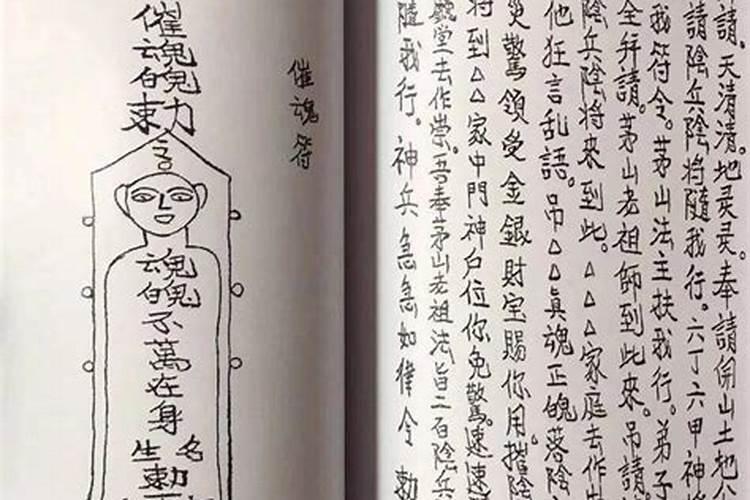 請。天清清。地灵灵。奉請開山土地公
請陰兵陰將隨我行。六丁六甲神將
我符令。茅山法主扶我行。弟子
全拜請。茅山老祖師到此來。吊請
陰兵陰將来到此。△△△家庭去作
他狂言乱語。吊△△真魂正魄落陰
災驚領受金銀財宝賜你用。摧陰
将到△△家中門神户位你免驚。速速
堂去作祟。吾奉茅山老祖法旨二百陰兵
隨我行。神兵急急如律令 勅
催魂符
催魂魄勅
魂魄不萬在身
名
勅
生